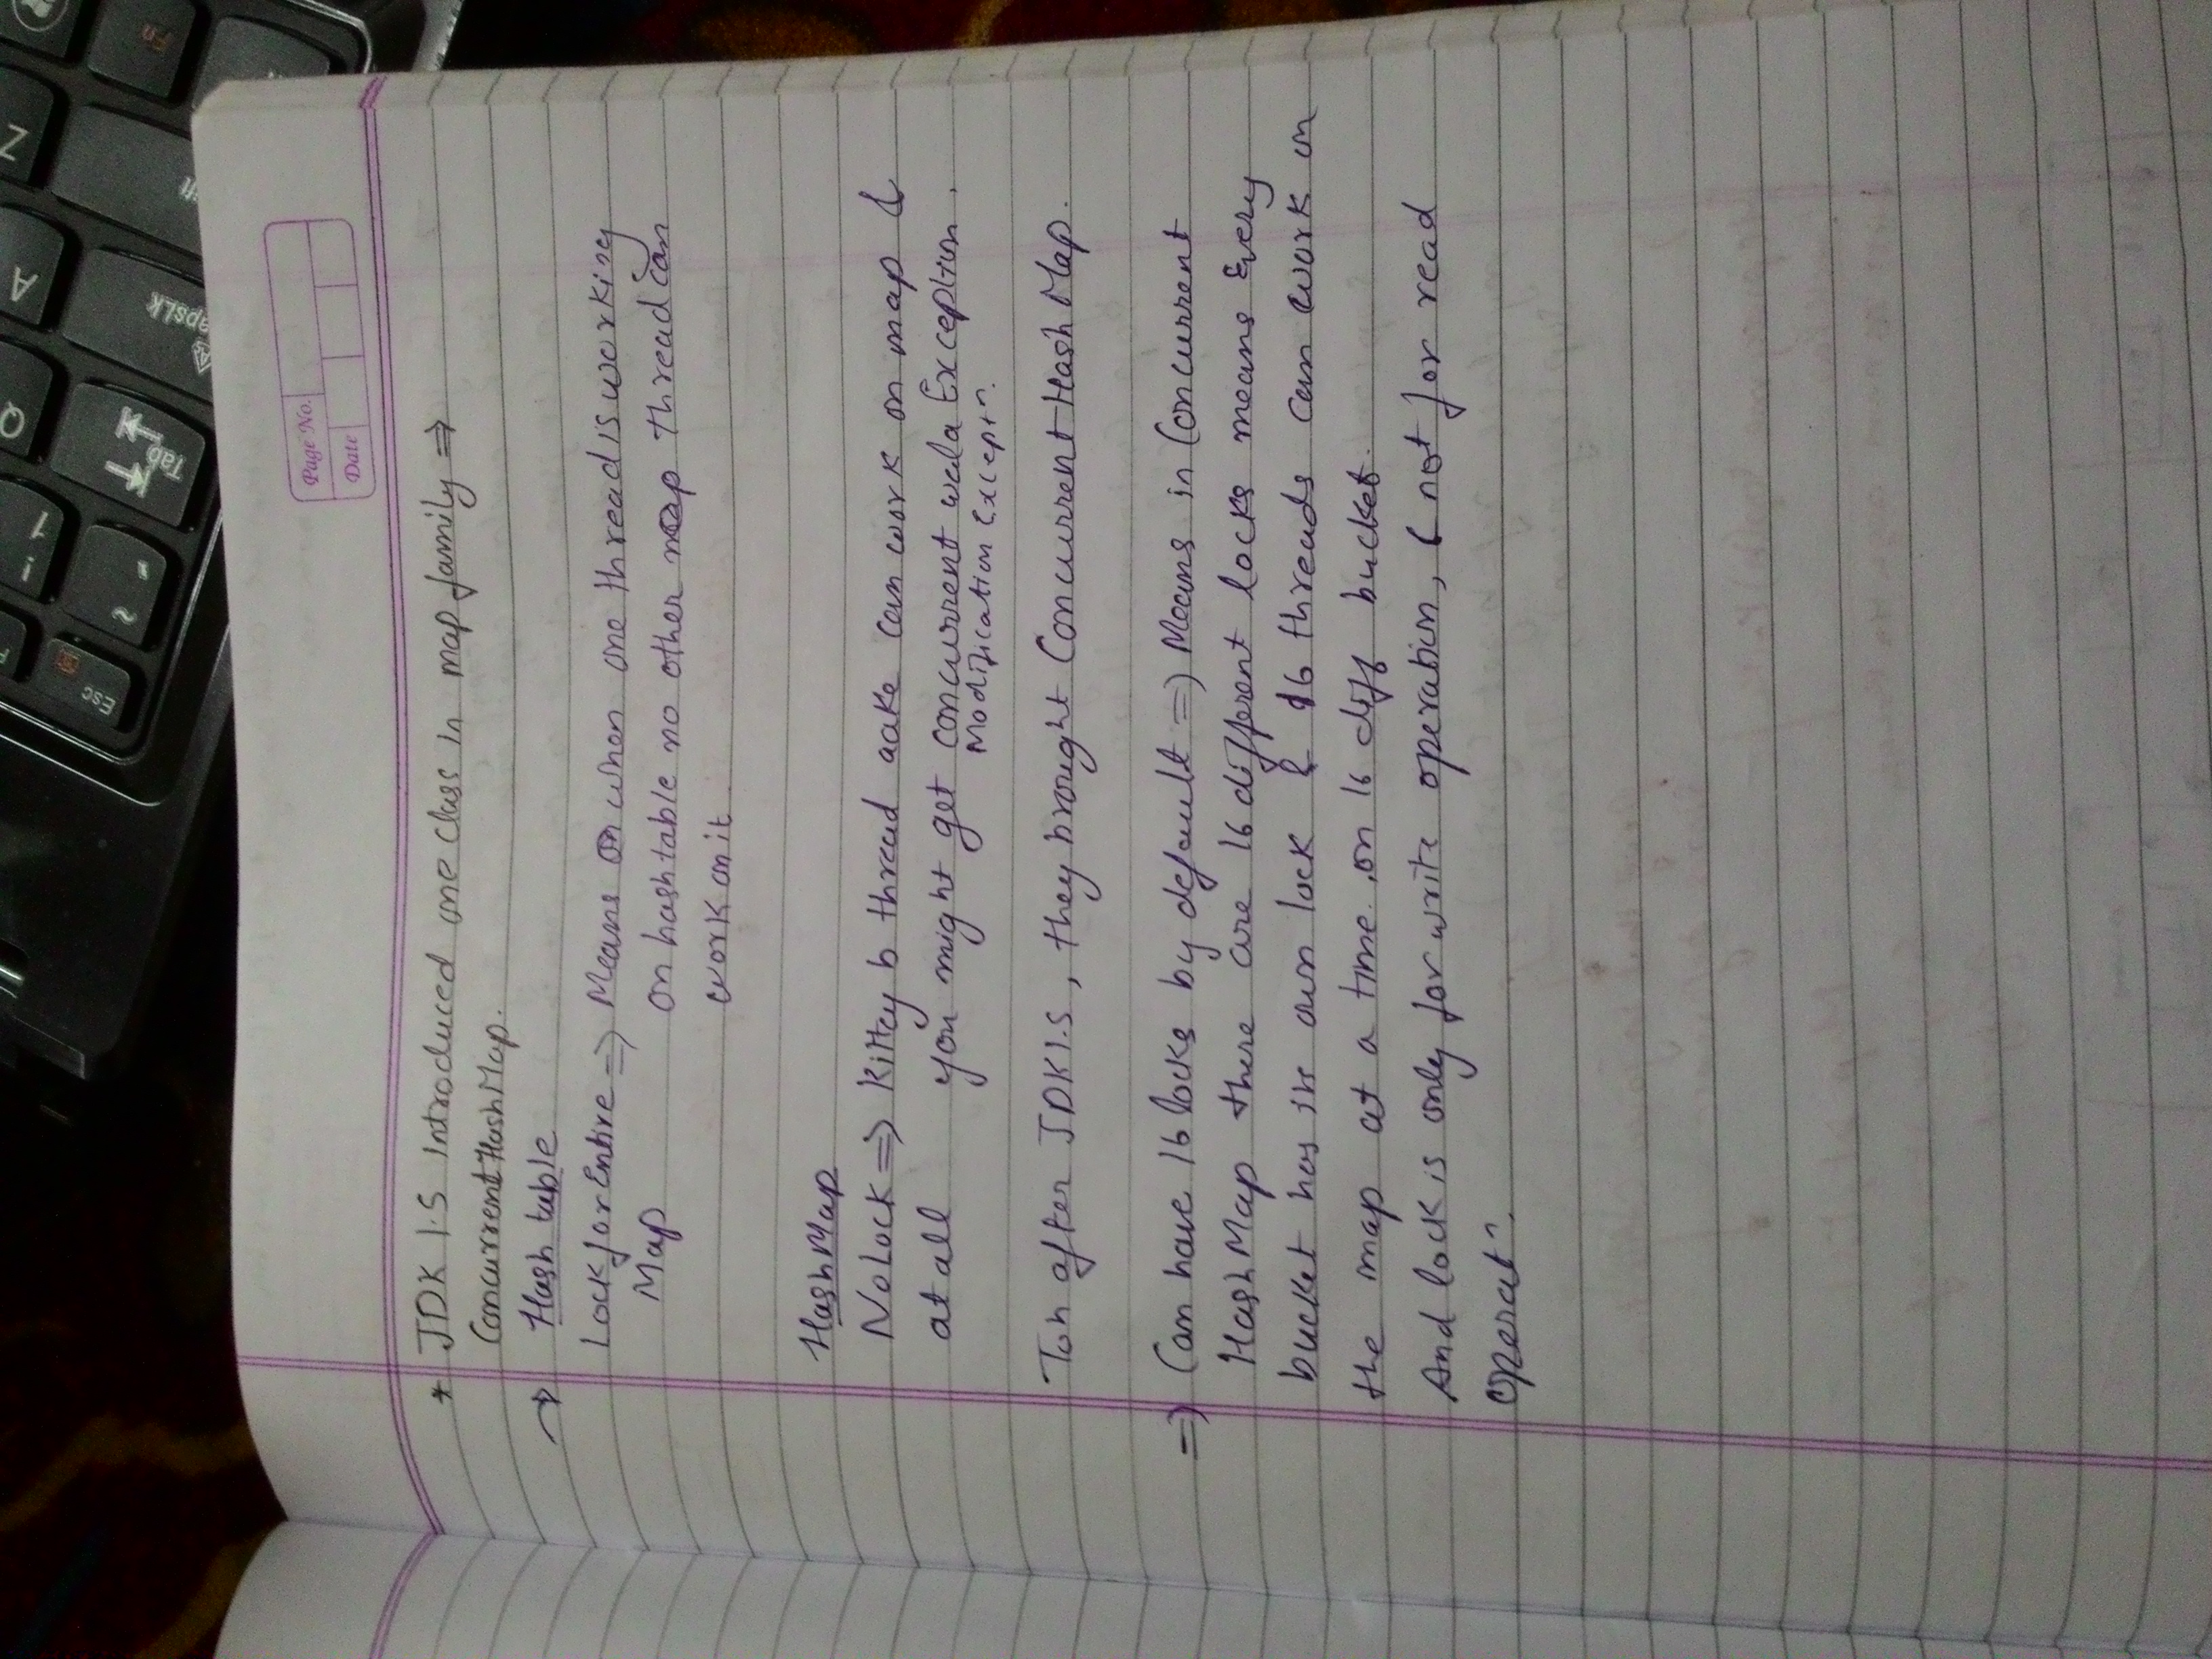 Esc
! 1
Q
A
Z
~ `
Tab
apsLk
Fn
Page No.
Date
* JDK 1.5 Introduced one class in map family ⇒
ConcurrentHashMap.
→ Hash table
Lock for Entire ⇒ Means when one thread is working
Map on hashtable no other map thread can
work on it
HashMap
No Lock ⇒ Kittey b thread aake can work on map &
at all you might get concurrent wala Exception.
Modification Exceptn.
Toh after JDK1.5, they brought ConcurrentHashMap.
⇒ Can have 16 locks by default ⇒ Means in Concurrent
HashMap there are 16 different locks means Every
bucket has its own lock & 16 threads can work on
the map at a time on 16 diff bucket.
And lock is only for write operation, ( not for read
operatn.